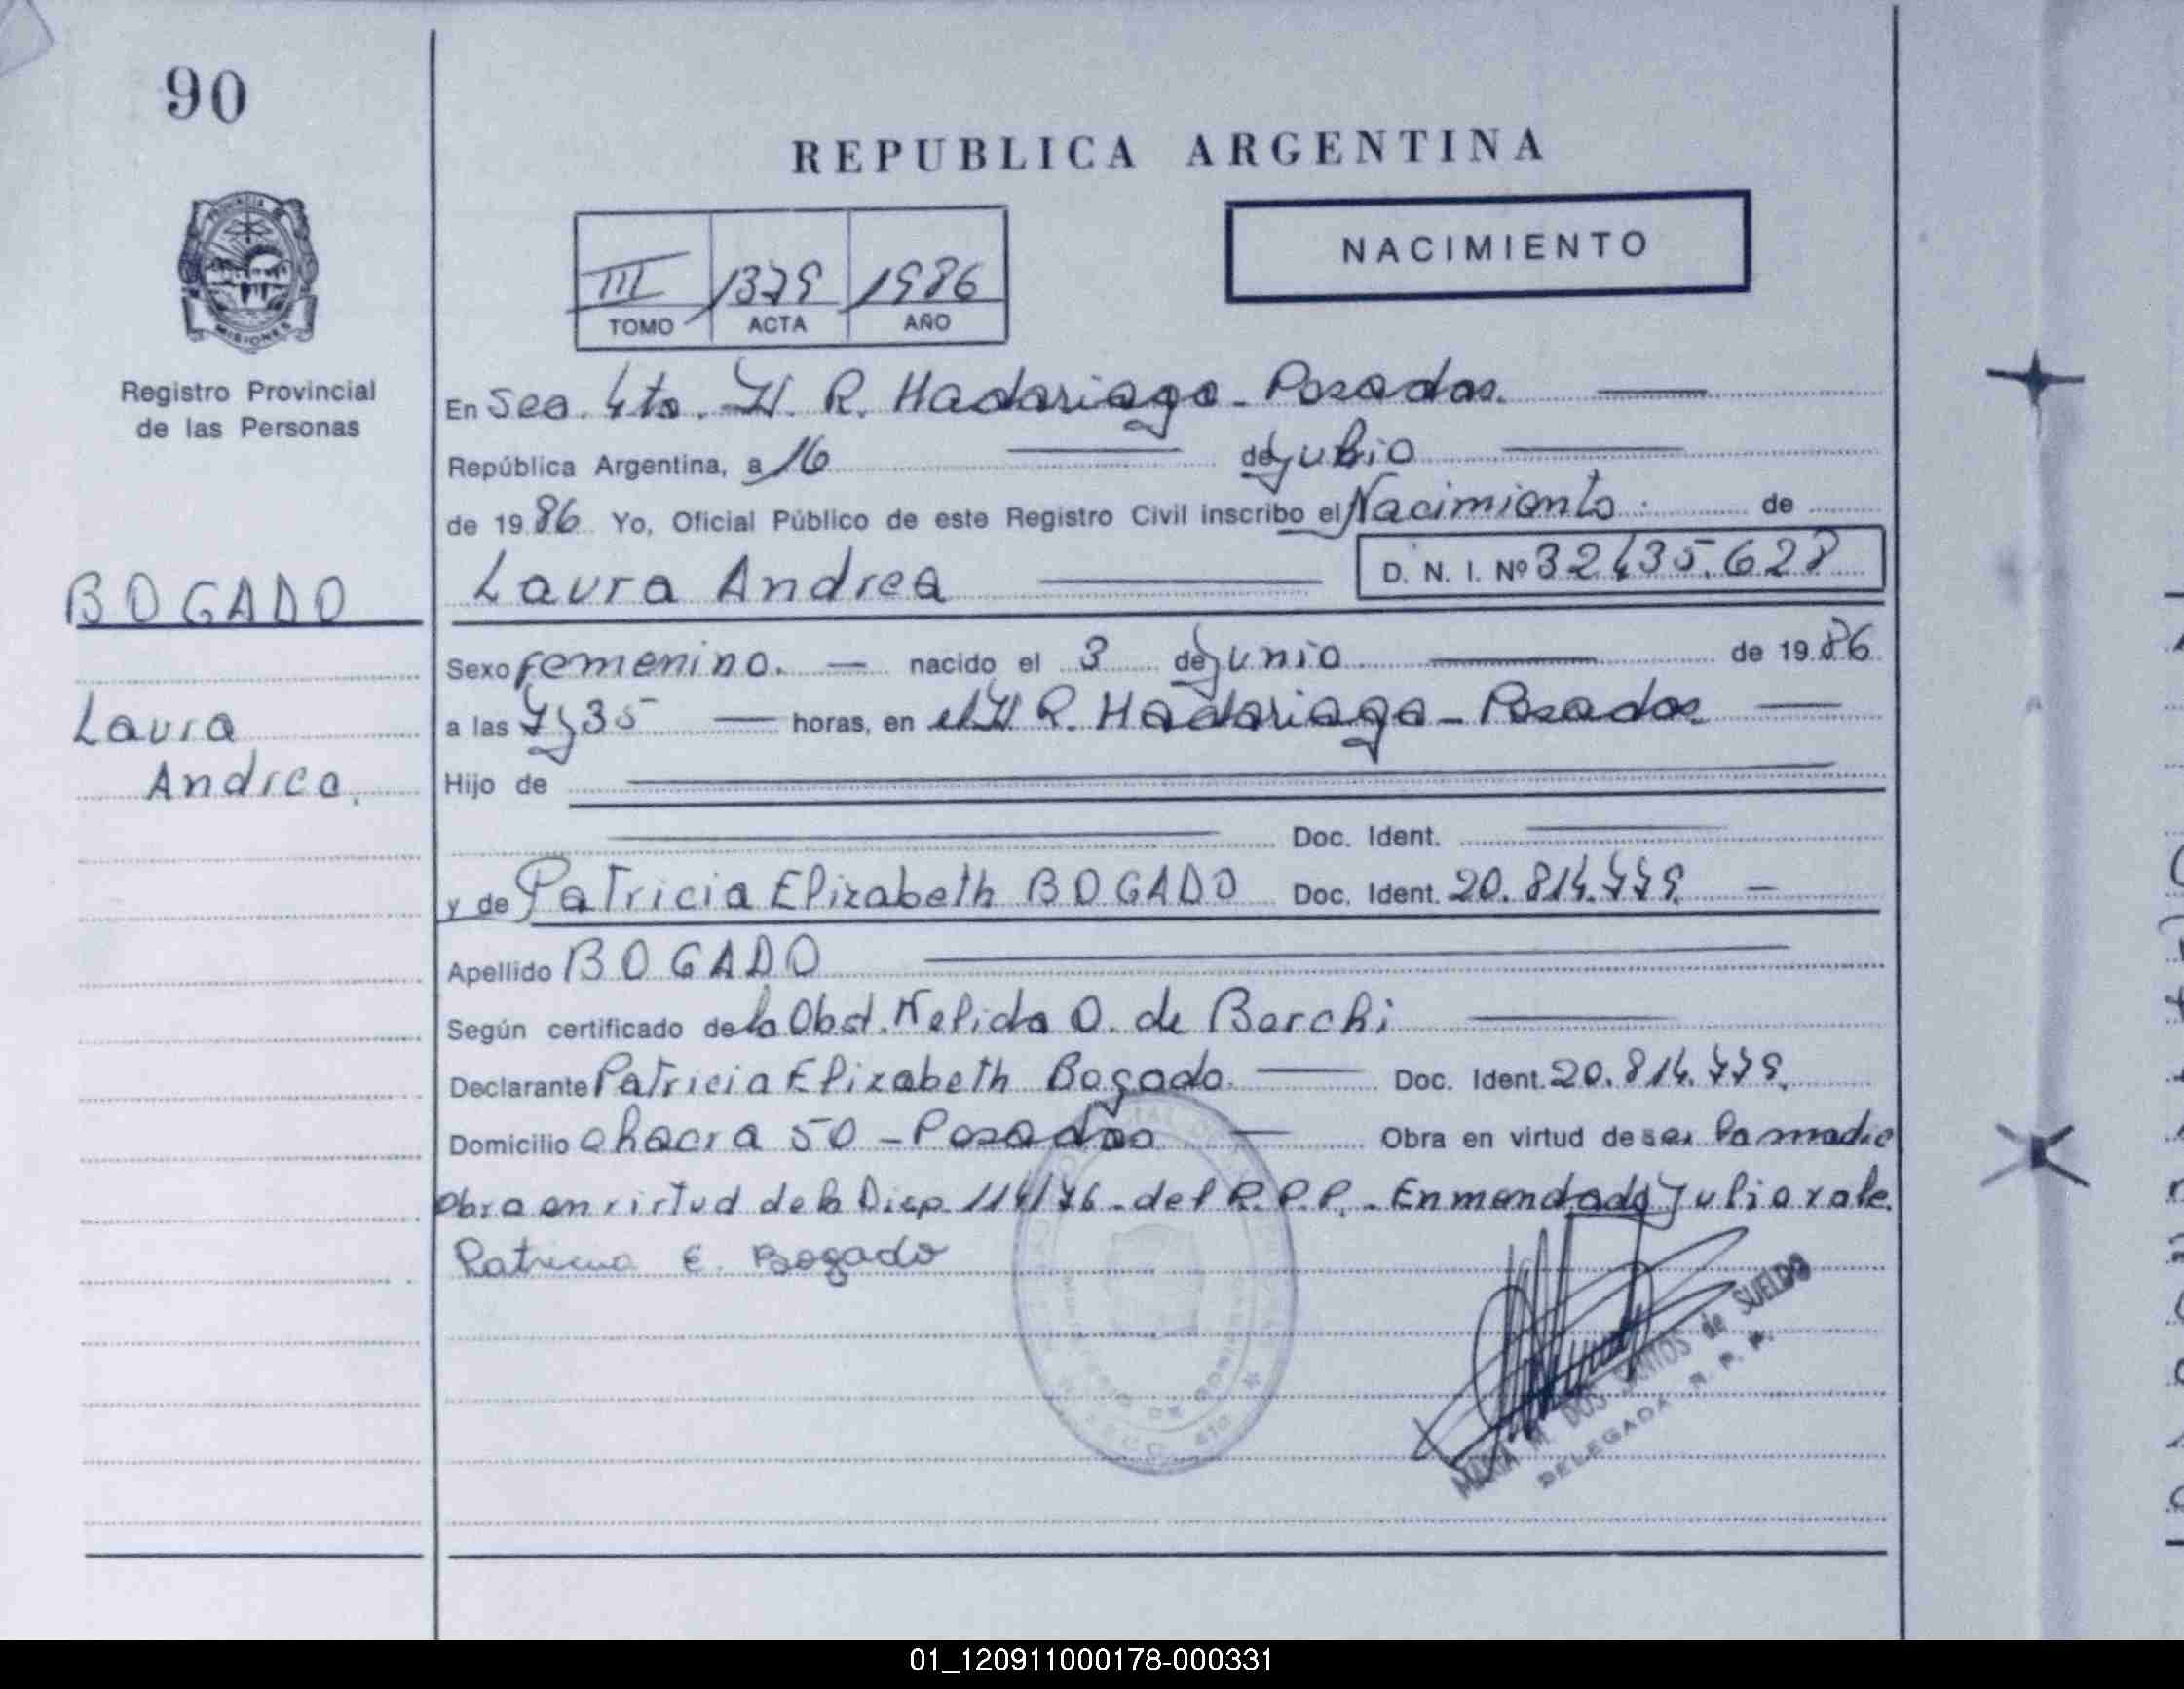 90
REPUBLICA ARGENTINA
NACIMIENTO
III 1379 1986
TOMO ACTA AÑO
PROVINCIA DE MISIONES
Registro Provincial
de las Personas
En Sec. 4ta. H. R. Madariaga - Posadas.
República Argentina, a 16 de Julio
de 1986 Yo, Oficial Público de este Registro Civil inscribo el Nacimiento de
BOGADO
Laura Andrea D. N. I. Nº 32.435.628
Sexo femenino. nacido el 3 de Junio de 1986
Laura
a las 7 y 35 horas, en el H R. Madariaga - Posadas
Andrea.
Hijo de
Doc. Ident.
y de Patricia Elizabeth BOGADO Doc. Ident. 20.814.779
Apellido BOGADO
Según certificado de la Obst. Nelida O. de Barchi
Declarante Patricia Elizabeth Bogado. Doc. Ident. 20.814.779.
Domicilio chacra 50 - Posadas Obra en virtud de ser la madre
Obra en virtud de la Disp. 114/76 - del R.P.P. - Enmendado Julio vale.
Patricia E. Bogado
MARIA M. DOS SANTOS de SUELDO
DELEGADA R. P. P.
01_120911000178-000331